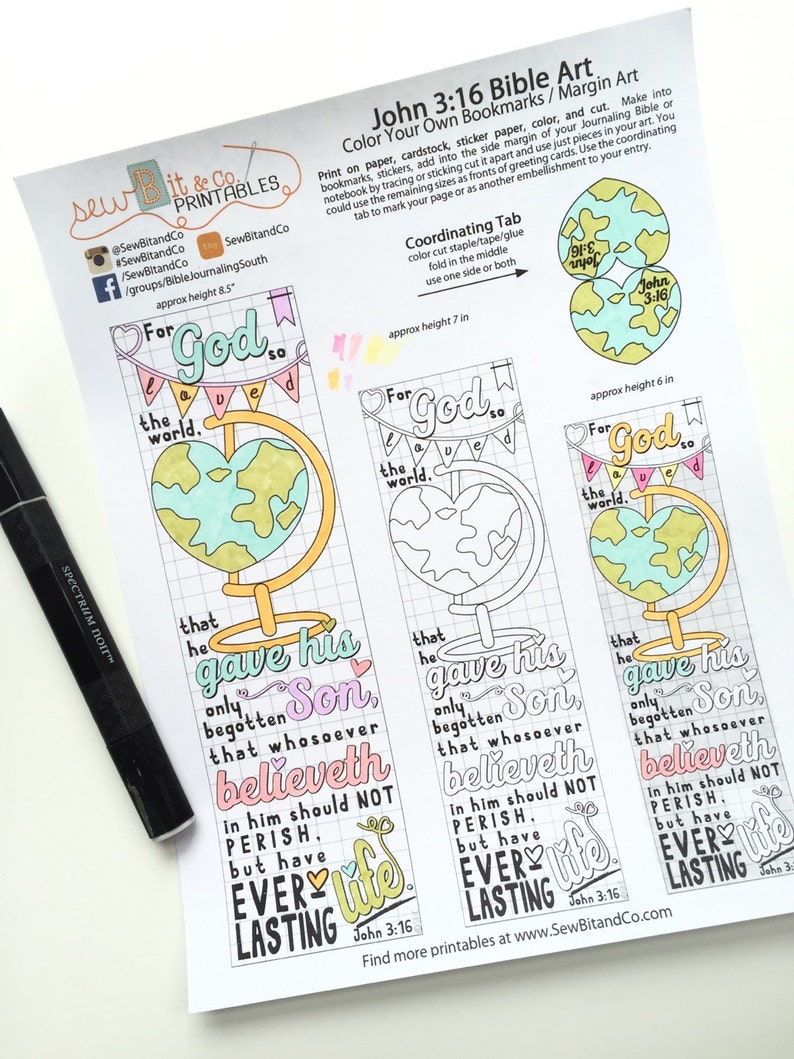 John 3:16 Bible Art
Color Your Own Bookmarks / Margin Art
Print on paper, cardstock, sticker paper, color, and cut. Make into
bookmarks, stickers, add into the side margin of your Journaling Bible or
notebook by tracing or sticking cut it apart and use just pieces in your art. You
could use the remaining sizes as fronts of greeting cards. Use the coordinating
tab to mark your page or as another embellishment to your entry.
sewBit & Co.
PRINTABLES
@SewBitandCo
#SewBitandCo
Etsy
SewBitandCo
/SewBitandCo
/groups/BibleJournalingSouth
Coordinating Tab
color cut staple/tape/glue
fold in the middle
use one side or both
John
3:16
John
3:16
approx height 8.5"
For
God so
loved
the
world,
that
he
gave his
only
begotten Son,
that whosoever
believeth
in him should NOT
PERISH,
but have
EVER-
LASTING life.
John 3:16
approx height 7 in
For
God so
loved
the
world,
that
he
gave his
only
begotten Son,
that whosoever
believeth
in him should NOT
PERISH,
but have
EVER-
LASTING life.
John 3:16
approx height 6 in
For
God so
loved
the
world,
that
he
gave his
only
begotten Son,
that whosoever
believeth
in him should NOT
PERISH,
but have
EVER-
LASTING life.
John 3:
Find more printables at www.SewBitandCo.com
spectrum noir™